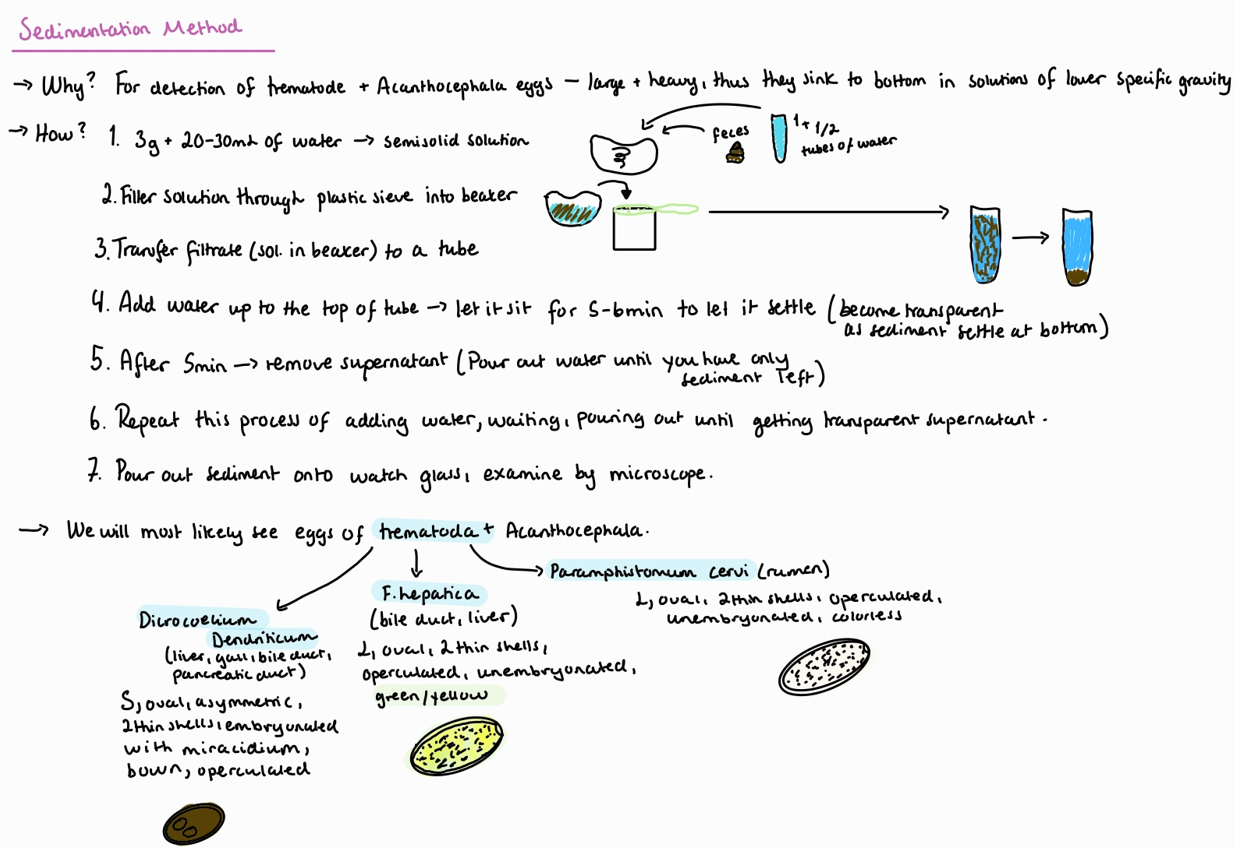 Sedimentation Method
→ Why? For detection of trematode + Acanthocephala eggs – large + heavy, thus they sink to bottom in solutions of lower specific gravity
→ How? 1. 3g + 20-30mL of water → semisolid solution
feces
1 + 1/2
tubes of water
2. Filler solution through plastic sieve into beaker
3. Transfer filtrate (sol. in beaker) to a tube
4. Add water up to the top of tube → let it sit for 5-6min to let it settle (become transparent
as sediment settle at bottom)
5. After 5min → remove supernatant (Pour out water until you have only
sediment left)
6. Repeat this process of adding water, waiting, pouring out until getting transparent supernatant.
7. Pour out sediment onto watch glass, examine by microscope.
→ We will most likely see eggs of trematoda + Acanthocephala.
Dicrocoelium
Dendriticum
(liver, gall, bile duct,
pancreatic duct)
S, oval, asymmetric,
2 thin shells, embryonated
with miracidium,
bown, operculated
F. hepatica
(bile duct, liver)
L, oval, 2 thin shells,
operculated, unembryonated,
green/yellow
Paramphistomum cervi (rumen)
L, oval, 2 thin shells, operculated,
unembryonated, colorless